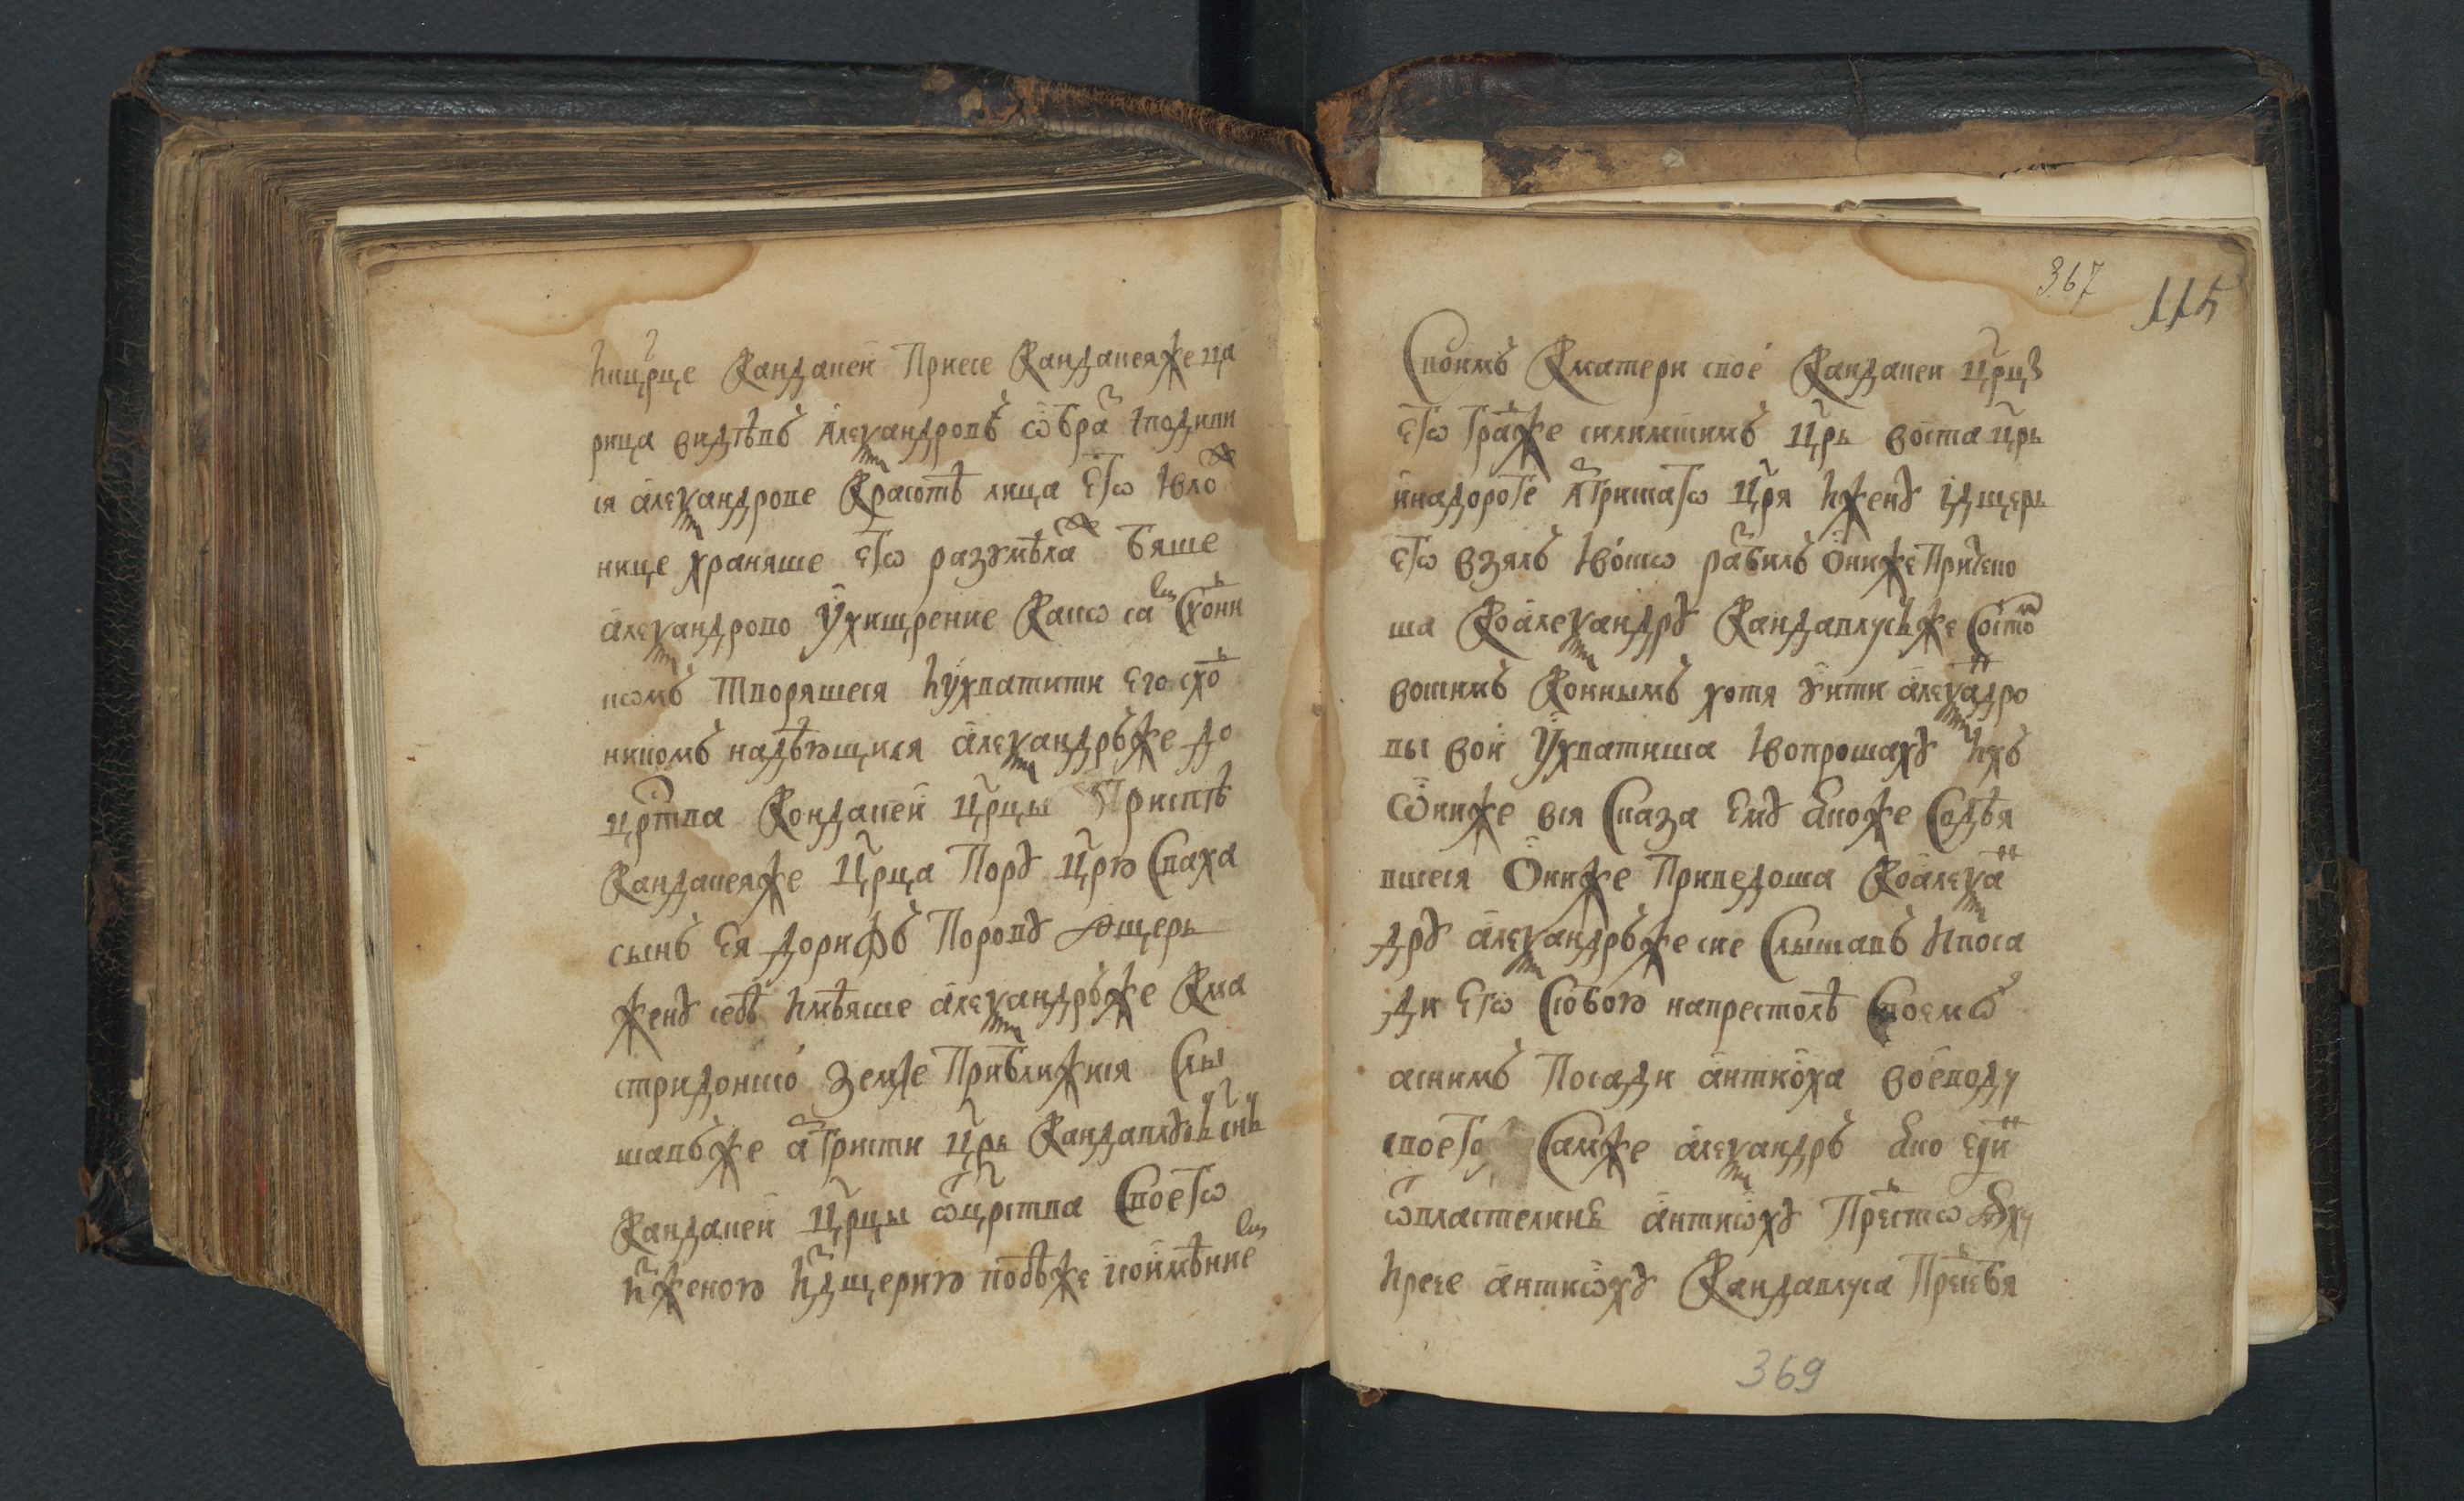 кцр҃це Кандакеи Принесе Кандакеѧже ца
рица видѣвъ Алеѯандровъ ѡбра҃з Iподиви
сѧ алеѯандрове Красотѣ лица Его Iвло
жнице храняше его разꙋмѣла бяше
алеѯандрово Ухищрение Како са схони
комъ творяшеся Iухватити его схо
никомъ надѣющися алеѯандръже до
цр҃тва Кондакеи цр҃цы Приспѣ
Кандакеяже цр҃ца Порꙋ цр҃ю Сваха
сынъ Ея дорифъ Поровꙋ дщерь
женꙋ себѣ Iмѣяше алеѯандръже Кма
стридонско земле Приближися Слы
шавъже агристи цр҃ь Кандавлꙋсъ сн҃ъ
Кандакеи цр҃цы ѡцр҃ства Своего
Iженою Iдщерию побѣже исоимѣние
367
115
Своимъ Кматери своеи Кандакеи цр҃цѣ
Его граже силимшимъ цр҃ь воста цр҃ь
инадороге Агришаго цр҃я Iженꙋ Iдщерь
его взялъ Iвоиско разбилъ Ониже Притеко
ша Коалеѯандрꙋ Кандавлусъже Состо
вошимъ Коннымъ хотя ꙋити алеѯадро
вы вои Ухватиша Iвопрошахꙋ Iхъ
Ониже вся Сказа Емꙋ Якоже Содѣя
вшеся Ониже Приведоша Коалеѯа
дрꙋ алеѯандръже сие Слышавъ Iпоса
ди Его Собою напрестолѣ Своемъ
аснимъ Посади антиоха воеводу
своего Самже алеѯандръ Яко един
ѡвластелинъ антиохꙋ Престоѧху
Iрече антиохꙋ Кандавлуса Претебя
369